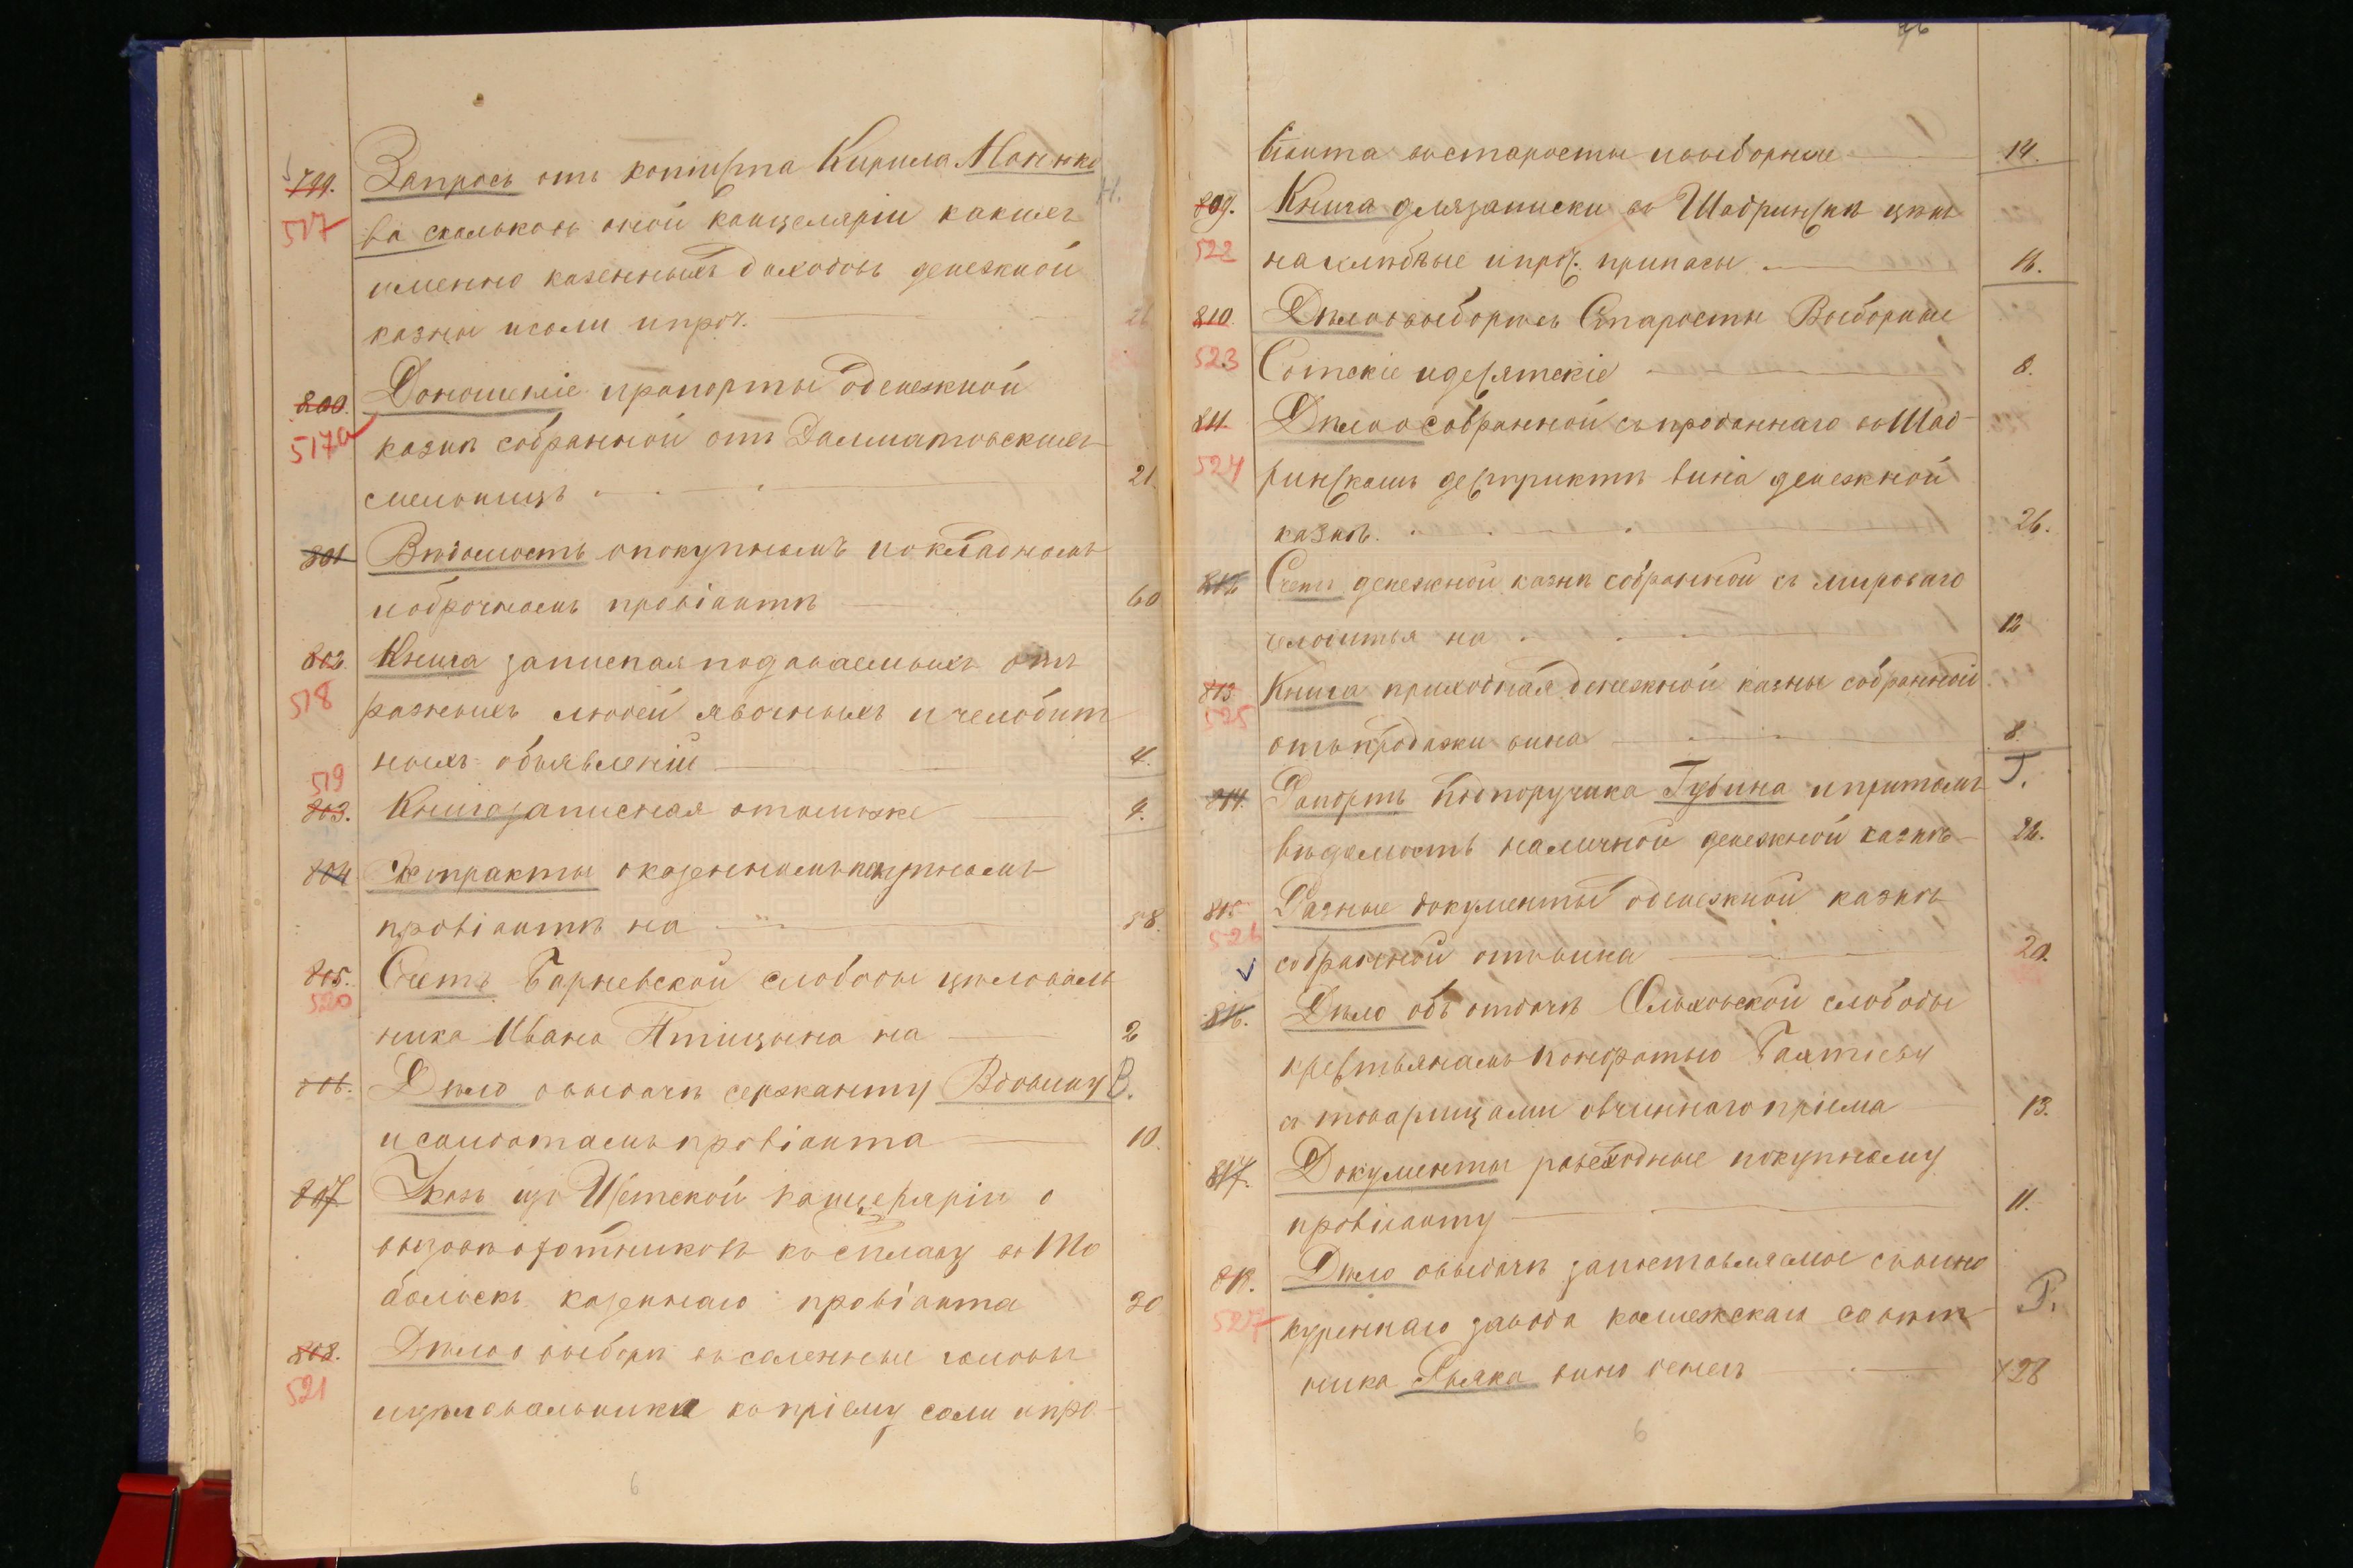 799. Запросъ отъ кописта Кирила Манюко
517 ва сколько въ оной канцеляріи какихъ
именно казенныхъ доходовъ денежной
казны и соли и проч. 21
800. Доношеніе и рапорты о денежной
517а казнѣ собранной отъ Далматовскихъ
мельницъ 21.
801 Вѣдомость о покупномъ и окладномъ
и оброчномъ провіантѣ 60
802. Книга записная подаваемыхъ отъ
518 разныхъ людей явочныхъ и челобит
ныхъ объявленій 4.
519
803. Книга записная о 4.
804 Экстракты о казенномъ покупномъ
провіантѣ на 58.
805. Счетъ Барневской слободы цѣловаль
520
ника Ивана Птицына на 2
806. Дѣло о выдачѣ сержанту Вдовину В.
и солдатамъ провіанта 10.
807 Указъ изъ Исетской канцеляріи о
вызовѣ охотниковъ къ сплаву въ То
больскъ казеннаго провіанта 20
808. Дѣло о выборѣ въ соленные головы
521
и цѣловальники къ пріему соли и про
6
віанта въ старосты и выборные 14.
809. Книга для записки въ Шадринскѣ цѣнъ
522 на хлѣбные и проч. припасы 16.
810. Дѣло о выборѣ въ Старосты Выборные
523 Сотскіе и десятскіе 8.
811. Дѣло о собранной съ проданнаго въ Шад-
524 ринскомъ дестриктѣ вина денежной
казнѣ. 26.
812 Счетъ денежной казнѣ собранной съ мироваго
челобитья на 12
813 Книга приходная денежной казны собранной
525
отъ продажи вина 8.
814. Рапортъ подпоручика Губина и притомъ Г.
вѣдомость наличной денежной казнѣ 22.
815 Разные документы о денежной казнѣ
526
собранной отъ вина 20.
816. Дѣло объ отдачѣ Ольховской слободы
крестьянамъ Кондратью
съ товарищами овчиннаго пріема 13.
817. Документы расходные покупному
провіанту 11.
818. Дѣло о выдачѣ за поставляемое съ вино
527 куреннаго завода колежскаго совѣт Р.
ника вино денегъ 28
6